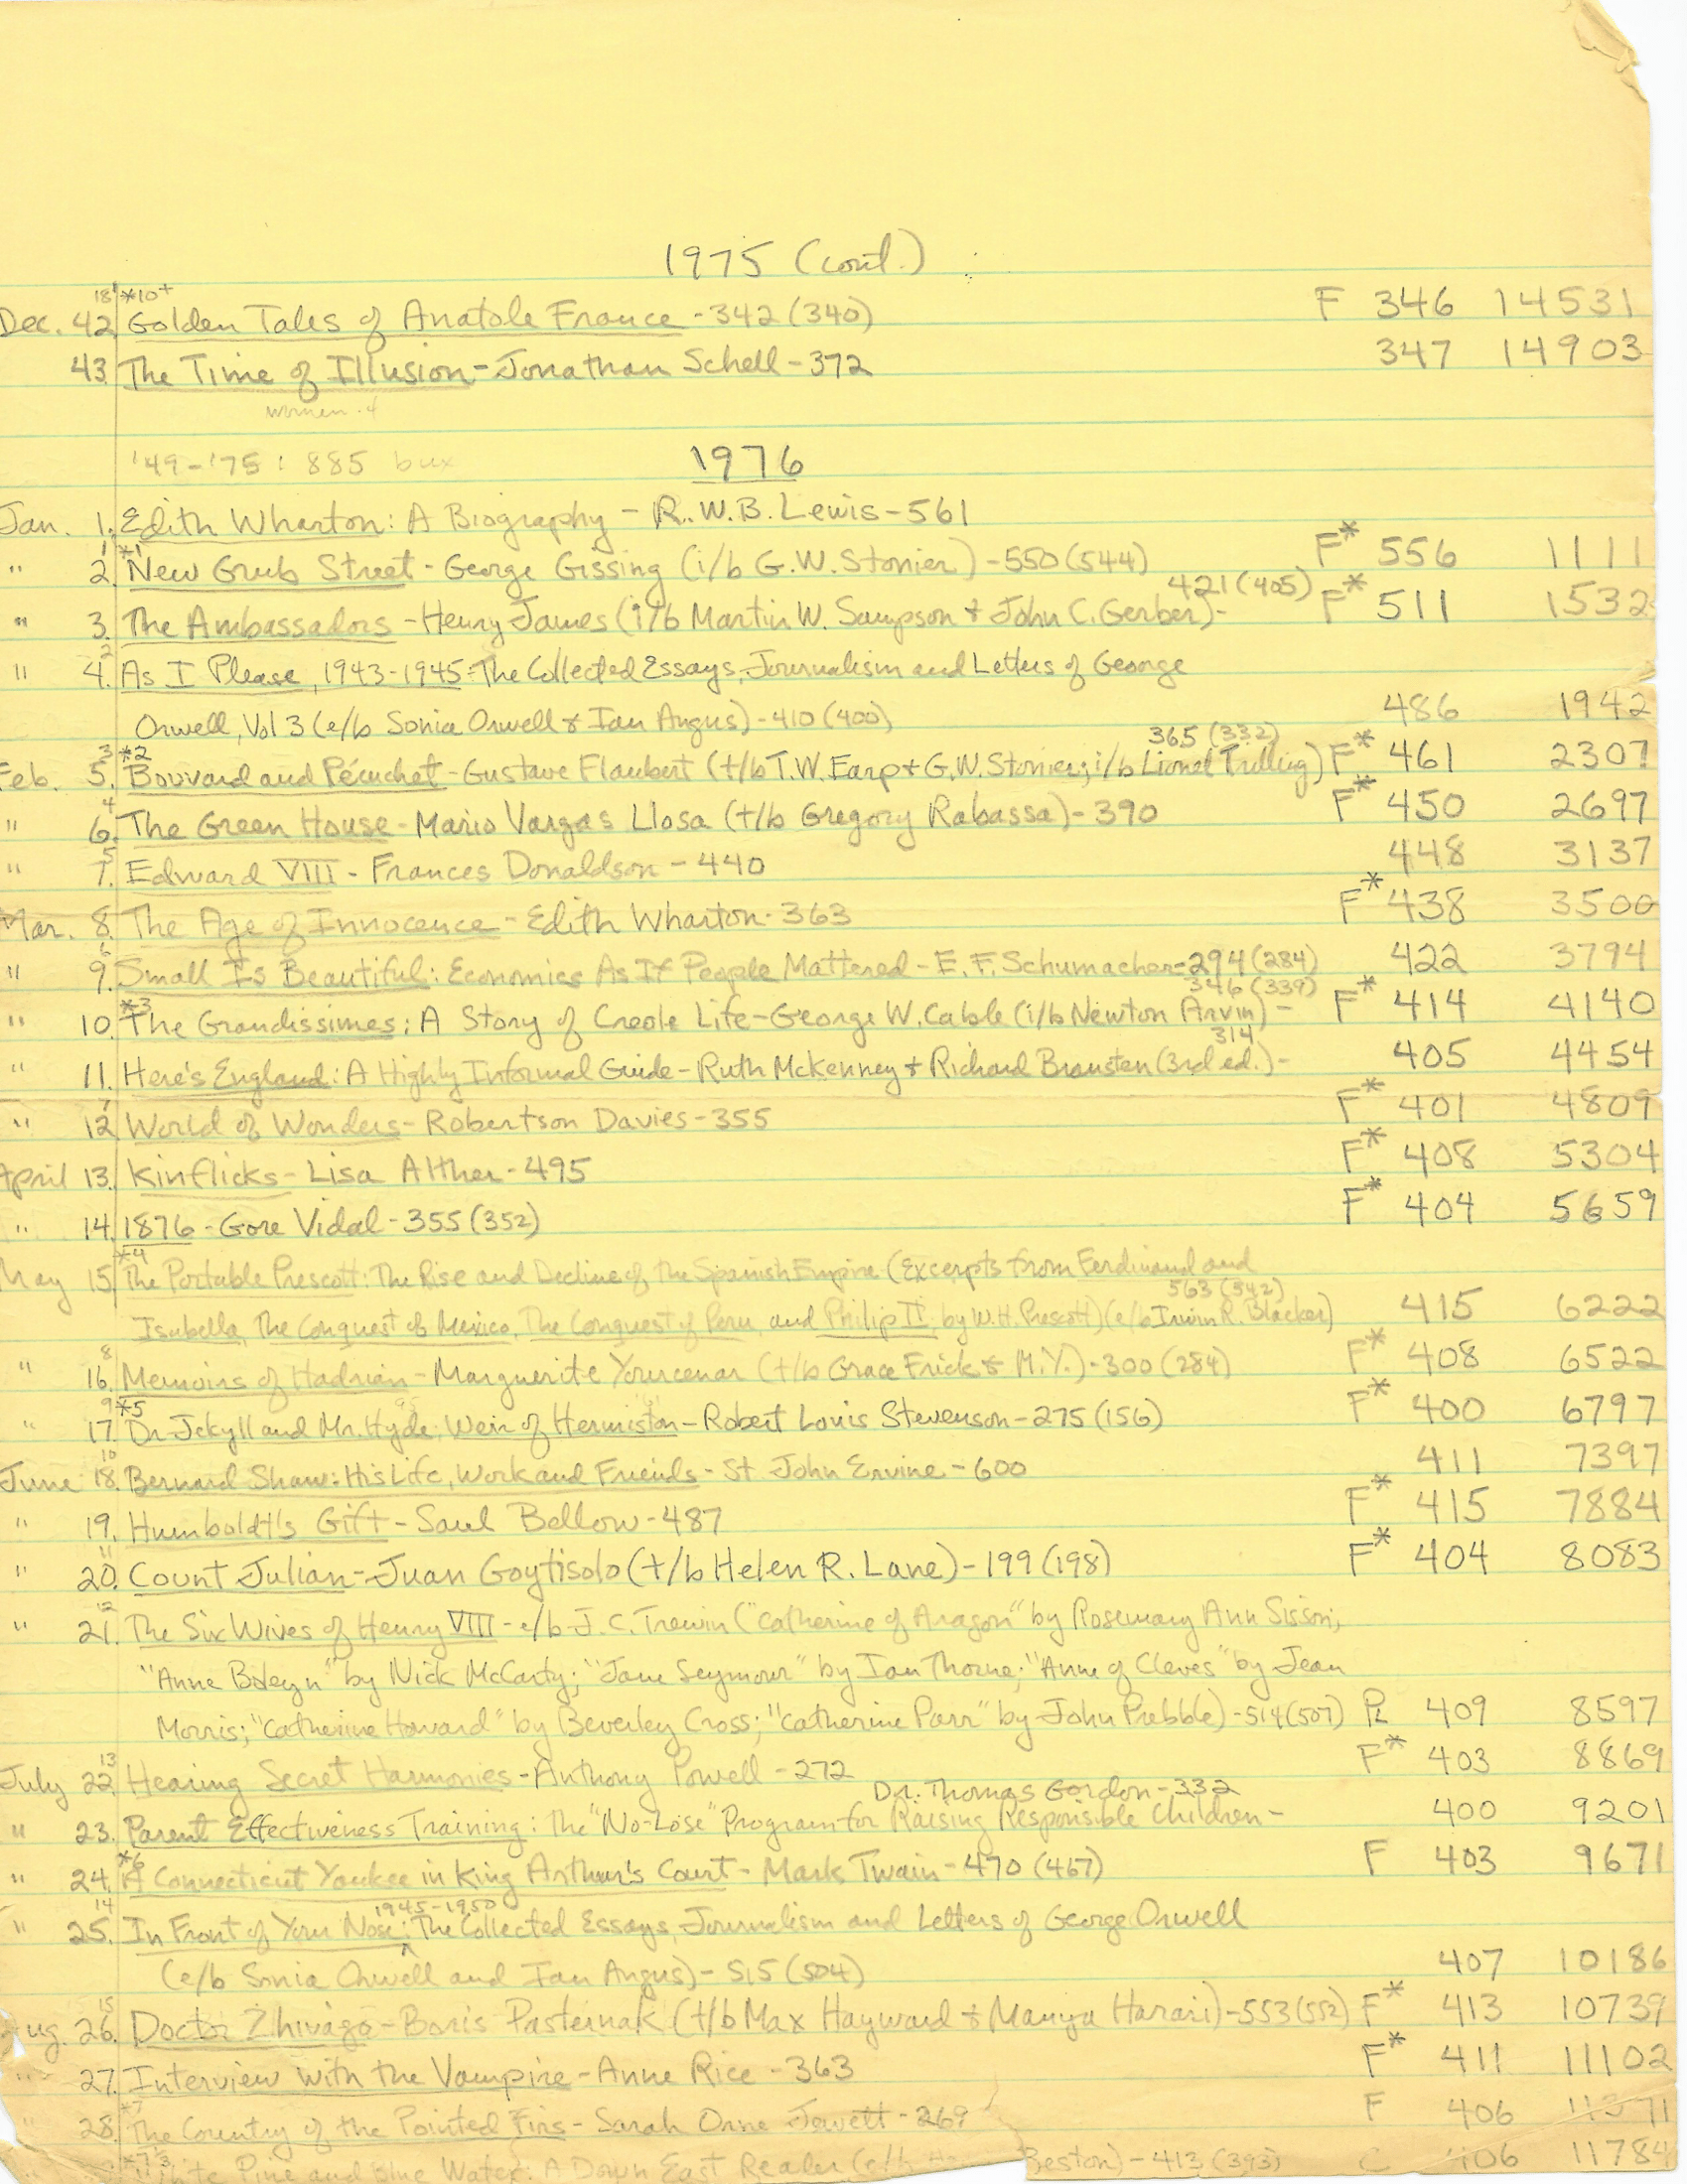 1975 (cont.)
18 *10+
Dec. 42. Golden Tales of Anatole France - 342 (340) F 346 14531
43. The Time of Illusion - Jonathan Schell - 372 347 14903
women - 4
'49-'75: 885 bux 1976
Jan. 1. Edith Wharton: A Biography - R.W.B. Lewis - 561
1 *1
" 2. New Grub Street - George Gissing (i/b G.W. Stonier) - 550 (544) F* 556 1111
421 (405)
" 3. The Ambassadors - Henry James (i/b Martin W. Sampson + John C. Gerber) - F* 511 1532
2
" 4. As I Please, 1943-1945: The Collected Essays, Journalism and Letters of George
Orwell, Vol 3 (e/b Sonia Orwell & Ian Angus) - 410 (400) 486 1942
3 *2 365 (332)
Feb. 5. Bouvard and Pécuchet - Gustave Flaubert (t/b T.W. Earp + G.W. Stonier; i/b Lionel Trilling) F* 461 2307
4
" 6. The Green House - Mario Vargas Llosa (t/b Gregory Rabassa) - 390 F* 450 2697
5
" 7. Edward VIII - Frances Donaldson - 440 448 3137
Mar. 8. The Age of Innocence - Edith Wharton - 363 F* 438 3500
6
" 9. Small Is Beautiful: Economics As If People Mattered - E.F. Schumacher - 294 (284) 422 3794
*3 346 (339)
" 10. The Grandissimes: A Story of Creole Life - George W. Cable (i/b Newton Arvin) - F* 414 4140
314
" 11. Here's England: A Highly Informal Guide - Ruth McKenney + Richard Bransten (3rd ed.) - 405 4454
7
" 12. World of Wonders - Robertson Davies - 355 F* 401 4809
April 13. Kinflicks - Lisa Alther - 495 F* 408 5304
" 14. 1876 - Gore Vidal - 355 (352) F* 404 5659
*4
May 15. The Portable Prescott: The Rise and Decline of the Spanish Empire (Excerpts from Ferdinand and
563 (542)
Isabella, The Conquest of Mexico, The Conquest of Peru, and Philip II, by W.H. Prescott) (e/b Irwin R. Blacker) 415 6222
8
" 16. Memoirs of Hadrian - Marguerite Yourcenar (t/b Grace Frick & M.Y.) - 300 (284) F* 408 6522
9 *5
" 17. Dr. Jekyll and Mr. Hyde; Weir of Hermiston - Robert Louis Stevenson - 275 (156) F* 400 6797
10
June 18. Bernard Shaw: His Life, Work and Friends - St John Ervine - 600 411 7397
" 19. Humboldt's Gift - Saul Bellow - 487 F* 415 7884
11
" 20. Count Julian - Juan Goytisolo (t/b Helen R. Lane) - 199 (198) F* 404 8083
12
" 21. The Six Wives of Henry VIII - e/b J.C. Trewin ("Catherine of Aragon" by Rosemary Ann Sisson;
"Anne Boleyn" by Nick McCarty; "Jane Seymour" by Ian Thorne; "Anne of Cleves" by Jean
Morris; "Catherine Howard" by Beverley Cross; "Catherine Parr" by John Prebble) - 514 (507) PL 409 8597
13
July 22. Hearing Secret Harmonies - Anthony Powell - 272 F* 403 8869
Dr. Thomas Gordon - 332
" 23. Parent Effectiveness Training: The "No-Lose" Program for Raising Responsible Children - 400 9201
*6
" 24. A Connecticut Yankee in King Arthur's Court - Mark Twain - 470 (467) F 403 9671
14 1945-1950
" 25. In Front of Your Nose: The Collected Essays, Journalism and Letters of George Orwell
(e/b Sonia Orwell and Ian Angus) - 515 (504) 407 10186
15
Aug. 26. Doctor Zhivago - Boris Pasternak (t/b Max Hayward + Manya Harari) - 553 (552) F* 413 10739
" 27. Interview with the Vampire - Anne Rice - 363 F* 411 11102
*7
" 28. The Country of the Pointed Firs - Sarah Orne Jewett - 269 F 406
White Pine and Blue Water: A Down East Reader (e/b Beston) - 413 (393) 406 11784